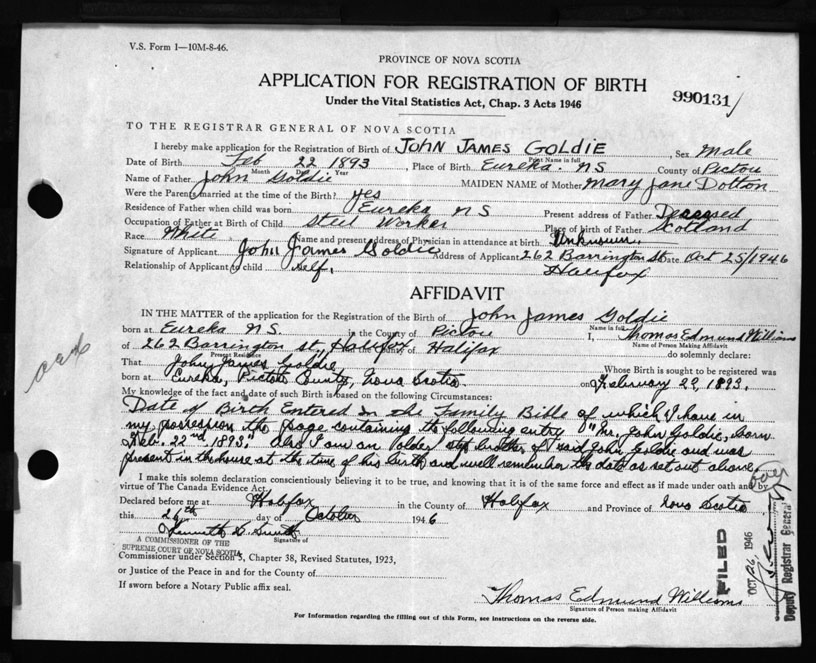 V.S. Form 1—10M-8-46.
PROVINCE OF NOVA SCOTIA
APPLICATION FOR REGISTRATION OF BIRTH
990131
Under the Vital Statistics Act, Chap. 3 Acts 1946
TO THE REGISTRAR GENERAL OF NOVA SCOTIA
I hereby make application for the Registration of Birth of JOHN JAMES GOLDIE, Sex Male
Print Name in full
Date of Birth Feb 22 1893, Place of Birth Eureka. NS County of Pictou
Month Day Year
Name of Father John Goldie MAIDEN NAME of Mother Mary Jane Dotton
Were the Parents married at the time of Birth? yes
Residence of Father when child was born Eureka NS Present address of Father Deceased
Occupation of Father at Birth of Child Steel Worker Place of birth of Father Scotland
Race White Name and present address of Physician in attendance at birth Unknown.
Signature of Applicant John James Goldie Address of Applicant 262 Barrington St Date Oct 25/1946
Relationship of Applicant to child Self. Halifax
AFFIDAVIT
IN THE MATTER of the application for the Registration of the Birth of John James Goldie
Name in full
born at Eureka N.S. in the County of Pictou I, Thomas Edmund Williams
Name of Person Making Affidavit
of 262 Barrington St, Halifax in the County of Halifax do solemnly declare:
Present Residence
That John James Goldie Whose Birth is sought to be registered was
born at Eureka, Pictou County, Nova Scotia on February 22, 1893.
My knowledge of the fact and date of such Birth is based on the following Circumstances:
Date of Birth Entered in the Family Bible of which I have in
my possession the page containing the following entry "Mr. John Goldie, born
Feb. 22nd, 1893." Also I am an older step brother of said John Goldie and was
present in the house at the time of his birth and well remember the date as set out above.
over
I make this solemn declaration conscientiously believing it to be true, and knowing that it is of the same force and effect as if made under oath and by
virtue of The Canada Evidence Act.
Declared before me at Halifax in the County of Halifax and Province of Nova Scotia
this 26th day of October 1946
Signature of
A COMMISSIONER OF THE
SUPREME COURT OF NOVA SCOTIA
Commissioner under Section 5, Chapter 38, Revised Statutes, 1923,
or Justice of the Peace in and for the County of
If sworn before a Notary Public affix seal.
Thomas Edmund Williams
Signature of Person making Affidavit
For Information regarding the filling out of this Form, see instructions on the reverse side.
FILED
OCT 26, 1946
Deputy Registrar General